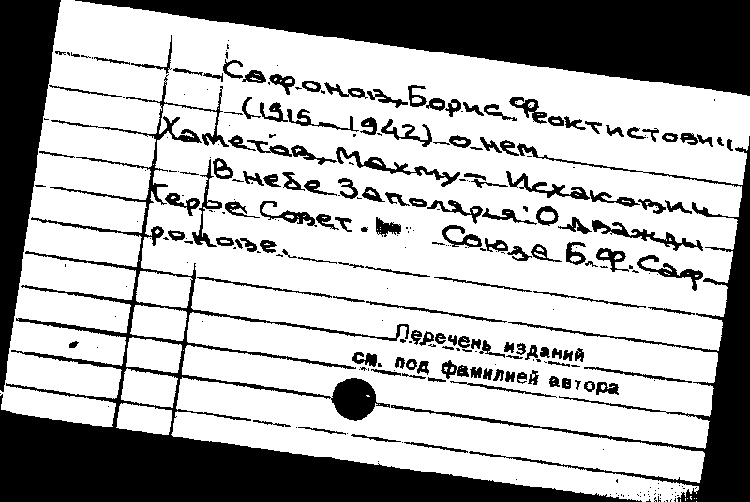 Сафонов, Борис Феоктистович
(1915–1942) о нем.
Хаметов, Махмут Исхакович
В небе Заполярья: О дважды
Герое Совет. Союза Б.Ф. Саф-
ронове.
Перечень изданий
см. под фамилией автора